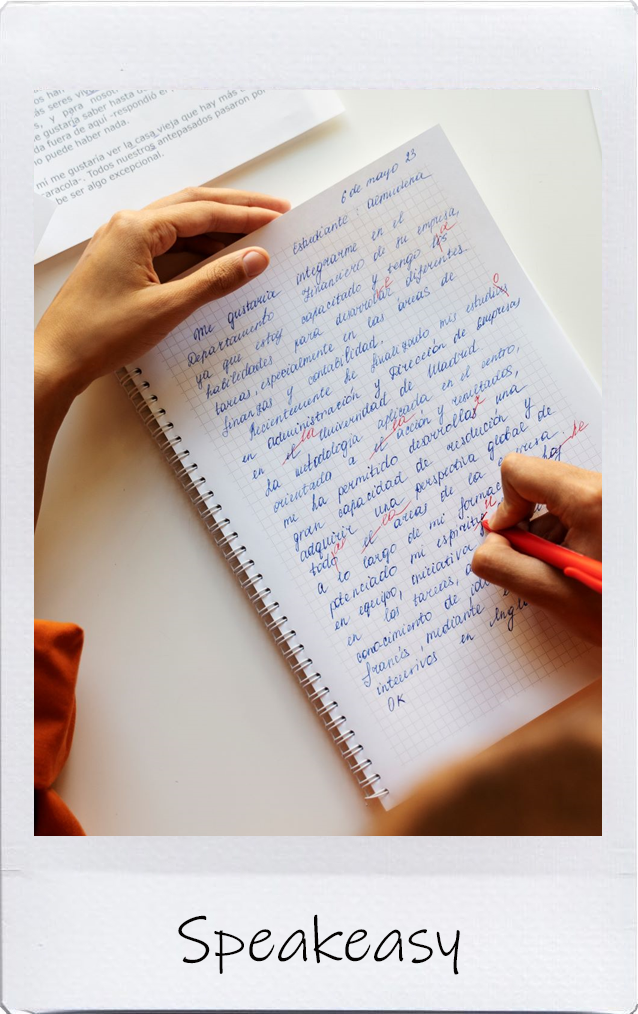 os han
ás seres vi
s, y para nosot
e gustaría saber hasta
da fuera de aquí -respondió el
o puede haber nada.
mí me gustaría ver la casa vieja que hay más
aracola-. Todos nuestros antepasados pasaron por
be ser algo excepcional.
6 de mayo 23
Estudiante: Demudena
Me gustaría integrarme en el
Departamento Financiero de su empresa,
ya que estoy capacitado y tengo las
habilidades para desarrollar diferentes
tareas, especialmente en las áreas de
finanzas y contabilidad.
Recientemente he finalizado mis estudios
en administración y dirección de empresas
en el la Universidad de Madrid.
La metodología aplicada en el centro,
orientada a el la acción y resultados,
me ha permitido desarrollar una
gran capacidad de resolución y
adquirir una perspectiva global de
todas el las áreas de la empresa.
A lo largo de mi
potenciado mi espíritu
en equipo, iniciativa
en las tareas,
conocimiento de
francés, mediante
intensivos en
OK
Speakeasy